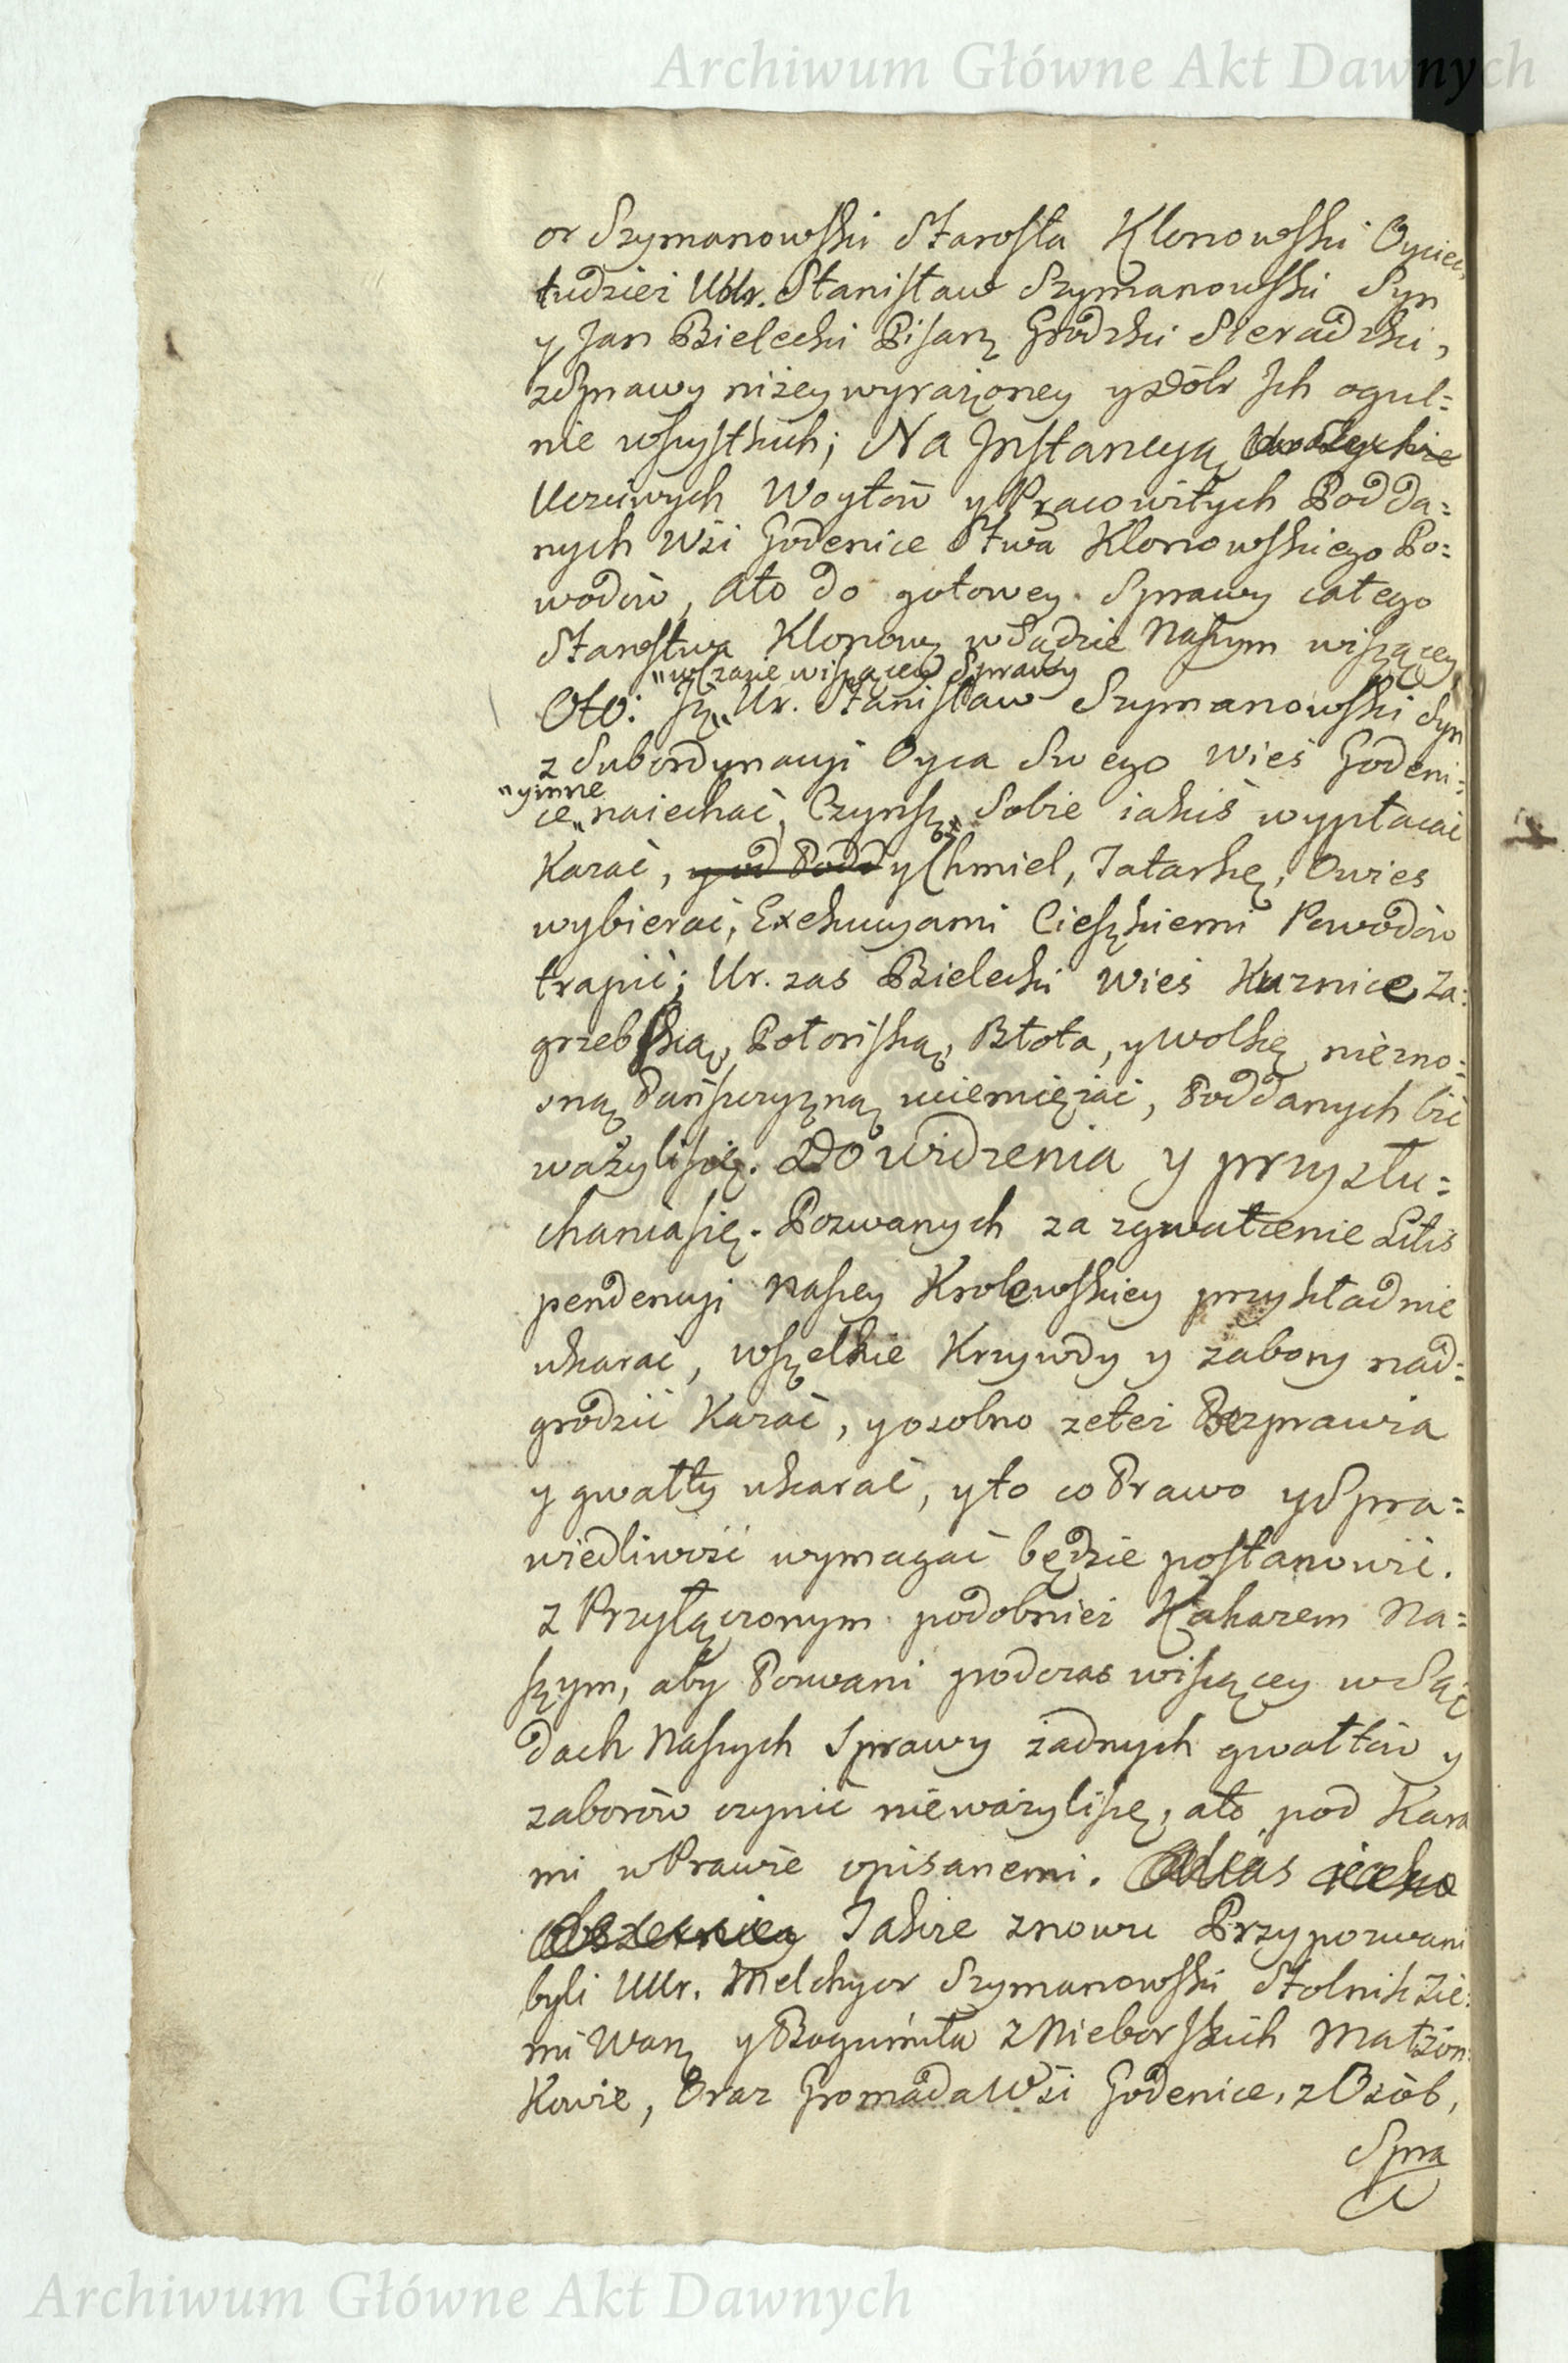 Archiwum Główne Akt Dawnych
or Szymanowski Starosta Klonowski Oyciec,
tudzież UUr. Stanisław Szymanowski Syn
y Jan Bielecki Pisarz Grodzki Sieradzki,
zSprawy niżey wyrażoney yzDobr Jch ogul=
nie wszystkich; Na Jnstancyą
Uczciwych Woytow y Pracowitych Podda=
nych Wsi Godenice Stwa Klonowskiego Po=
wodow, Ato do gotowey Sprawy całego
Starostwa Klonow: wSądzie Naszym wiszącey
"wczasie wiszącey Sprawy
Oto: Jż" Ur. Stanisław Szymanowski Syn
z Subordynacyi Oyca Swego Wieś Godeni=
"yinne
ce" naiechać, Czynsze Sobie iakieś wypłacać
Kazać, y od Podd y Chmiel, Tatarkę, Owies
wybierać, Exekucyami Cięszkiemi Powodow
trapić; Ur. zas Bielecki Wieś Kuznice Za=
grzebską, Połoriską, Błota, y Wolkę niezno=
sną Pańszczyzną uciemiężać, Poddanych bić
ważylisię. Do widzenia y przysłu=
chaniasię. Pozwanych za zgwałcenie Litis
pendencyi Naszey Krolewskiey przykładnie
ukarać, wszelkie Krzywdy y zabory nad=
grodzić Kazać, yosobno zeteż Bezprawia
y gwałty ukarać, yto co Prawo ySpra=
wiedliwość wymagać będzie postanowić.
z Przyłączonym podobnież Zakazem Na=
szym, aby Pozwani podczas wiszącey wSą=
dach Naszych Sprawy żadnych gwałtow y
zaborow czynić nieważylisię, ato pod Kara
mi wPrawie opisanemi. Alias
Takze znowu Przypozwani
byli UUr. Melchyor Szymanowski Stolnik Zie=
mi Warz y Bogumiła zNieborskich Małżon=
Kowie, Oraz Gromada Wsi Godenice, zOsób,
Spra
Archiwum Główne Akt Dawnych